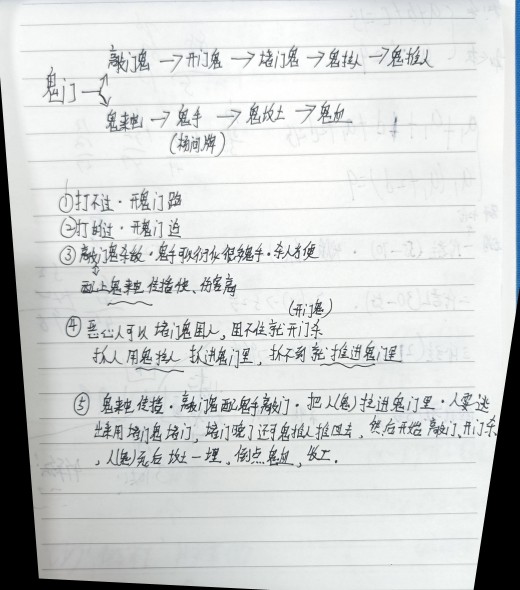 敲门鬼→开门鬼→堵门鬼→鬼拦人→鬼推人
鬼门
鬼来电→鬼手→鬼坟土→鬼血
①打不过·开鬼门跑
②打的过·开鬼门追
③敲门鬼杀敌·鬼手可以衍化很多鬼手·杀人方便
配上鬼来电 传播快、伤害高
(开门鬼)
④恶心人可以 堵门鬼困人，困不住就开门杀
抓人用鬼拦人 抓进鬼门里，抓不到就推进鬼门里
⑤鬼来电传播·敲门鬼配鬼手敲门·把人(鬼)拉进鬼门里·人要逃
出来用堵门鬼堵门，堵门晚了还可鬼推人推回去，然后开始敲门、开门杀
，人(鬼)死后坟土一埋，倒点鬼血，收工.